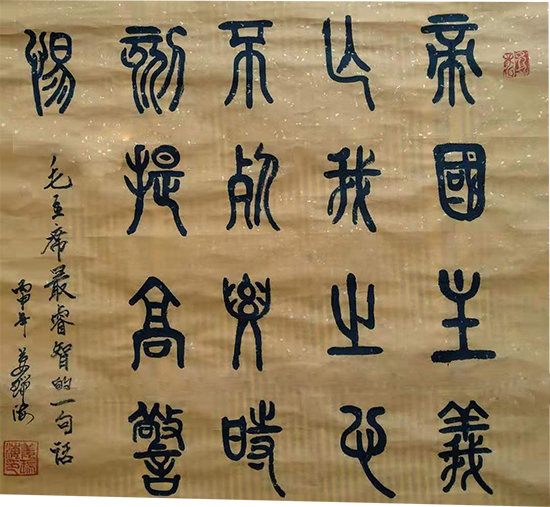 帝國主義
亡我之心
不死要時
刻提高警
惕
毛主席最睿智的一句話
丙申年 姜瑞海